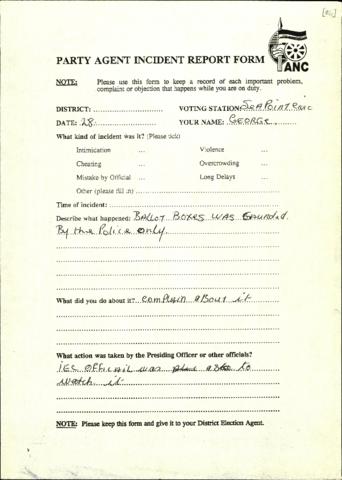 PARTY AGENT INCIDENT REPORT FORM
ANC
NOTE: Please use this form to keep a record of each important problem,
complaint or objection that happens while you are on duty.
DISTRICT: VOTING STATION: SEA POINT CIVIC
DATE: 28 YOUR NAME: GEORGE
What kind of incident was it? (Please tick)
Intimication ... Violence ...
Cheating ... Overcrowding ...
Mistake by Official ... Long Delays ...
Other (please fill in)
Time of incident:
Describe what happened: BALLOT BOXES WAS
By the Police only
What did you do about it? complain about it
What action was taken by the Presiding Officer or other officials?
IEC OFFICAIL was to
watch it
NOTE: Please keep this form and give it to your District Election Agent.